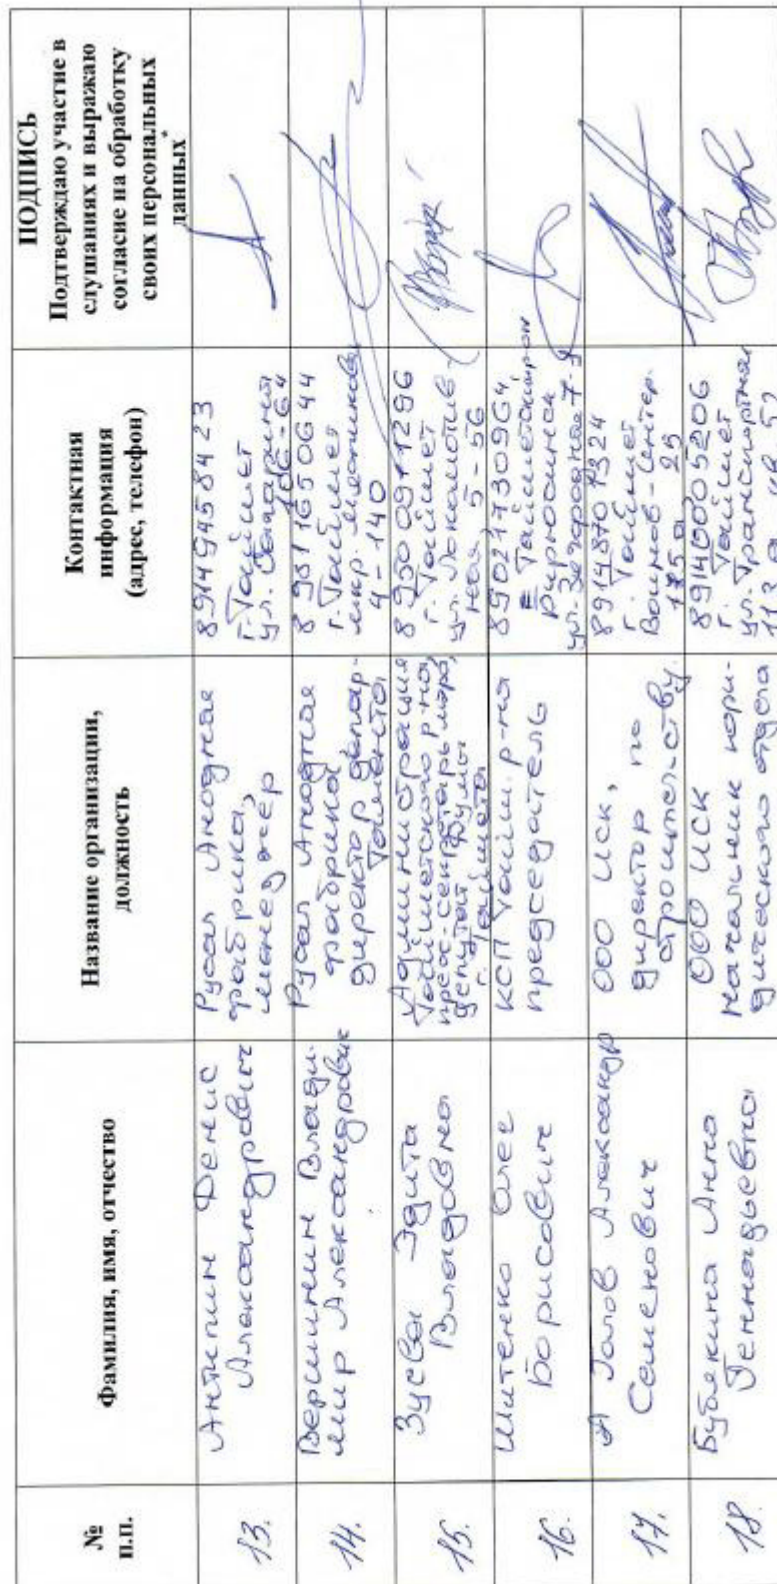 №
п.п.
Фамилия, имя, отчество
Название организации,
должность
Контактная
информация
(адрес, телефон)
ПОДПИСЬ
Подтверждаю участие в
слушаниях и выражаю
согласие на обработку
своих персональных
данных*
13.
Антипин Денис
Александрович
Русал Анодная
фабрика,
менеджер
89149458423
г. Тайшет
ул. Гагарина
106-64
14.
Вершинин Влади-
мир Александрович
Русал Анодная
фабрика
директор депар-
тамента
г. Тайшет
мкр. Мясникова
4-140
15.
Зуева Эдита
Владовна
Администрация
Тайшетского р-на,
пресс-секретарь мэра,
депутат Думы
г. Тайшета
89500911296
г. Тайшет
ул. Локомотив-
ная 5-56
16.
Шитенко Олег
Борисович
КСП Тайш. р-на
председатель
89021730964,
Тайшетский р-н
Бирюсинск
ул. Загородная 7-
17.
Семенович
ООО ИСК,
директор по
строительству.
г. Тайшет
Воинов-Интер.
25
18.
Бубякина Анна
Геннадьевна
ООО ИСК
начальник юри-
дического отдела
89140005206
г. Тайшет
ул. Транспортная